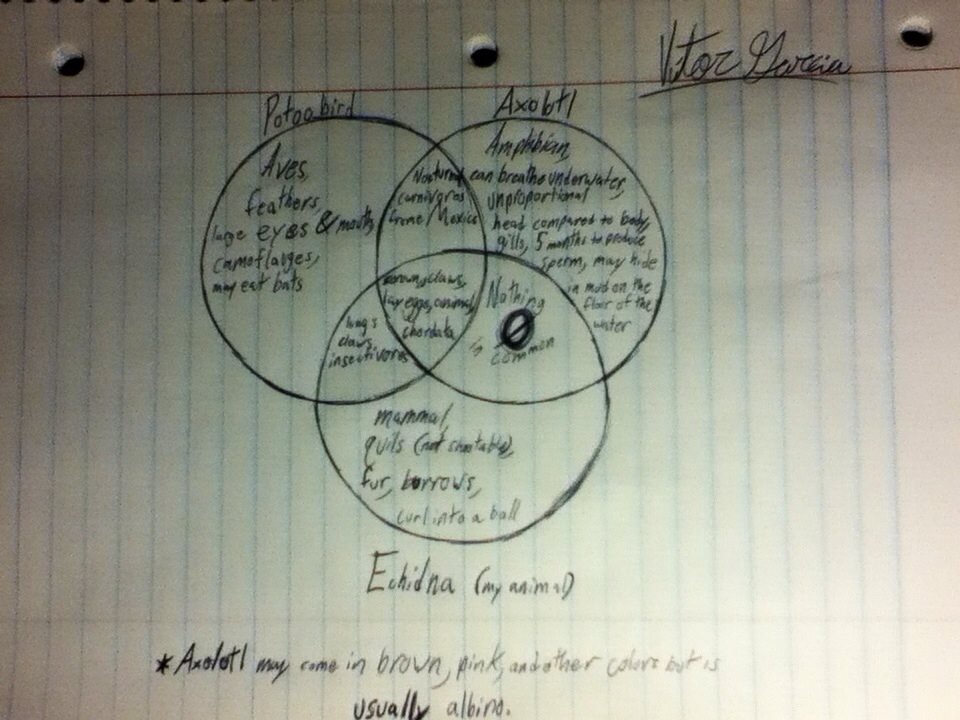 Vitor Garcia
Potoo bird
Axolotl
Aves,
feathers,
large eyes & mouth,
camoflauges,
may eat bats
Nocturnal,
carnivores
from/Mexico
Amphibian,
can breathe underwater,
unproportional
head compared to body,
gills, 5 months to produce
sperm, may hide
in mud on the
floor of the
water
brown, claws,
lay eggs, animal,
chordata
lungs
claws,
insectivores
Nothing
in
common
mammal,
quils (not shootable),
fur, burrows,
curl into a ball
Echidna (my animal)
*Axolotl may come in brown, pink, and other colors but is
usually albino.